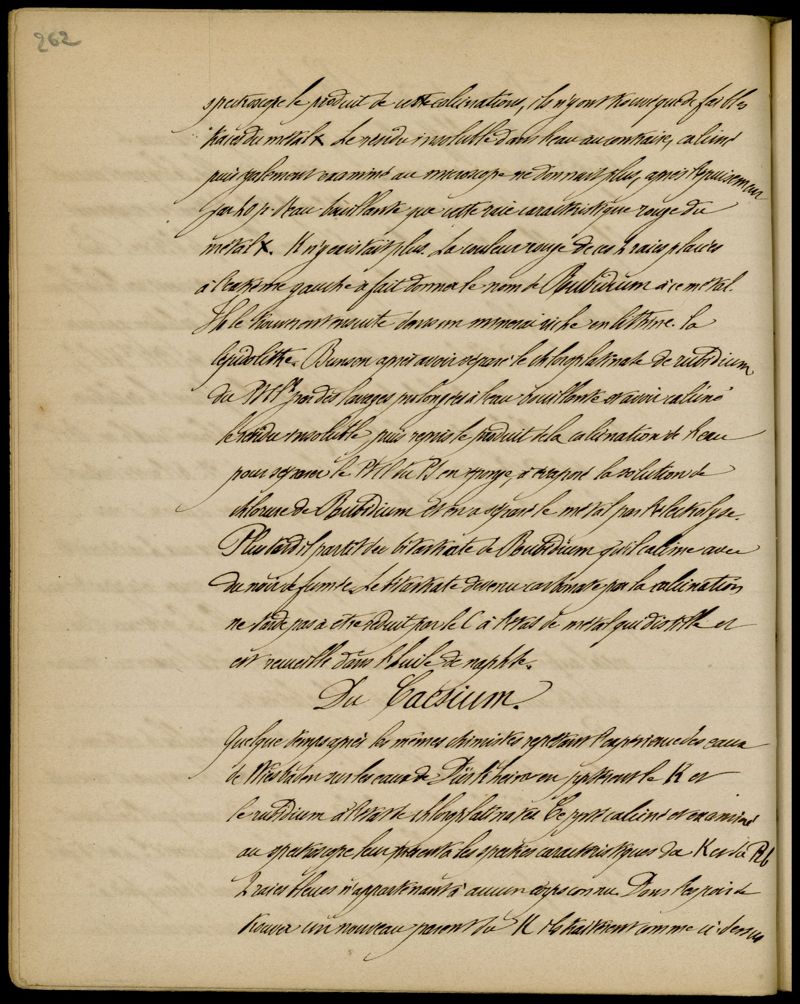 262
spectroscope le produit de cette calcination, ils n'y ont trouvé que de faibles
traces du métal x. Le résidu insoluble dans l'eau au contraire, calciné
puis également examiné au microscope ne donnait plus, après épuisement
par l'eau bouillante que cette raie caractéristique rouge du
métal x. K n'y existait plus. La couleur rouge de ces 2 raies placées
à l'extrême gauche a fait donner le nom de Rubidium à ce métal.
Ils le trouvèrent ensuite dans un minerai riche en lithine la
lépidolithe. Bunsen après avoir séparé le chloroplatinate de rubidium
du par des lavages prolongés à l'eau bouillante et avoir calciné
le résidu insoluble puis repris le produit de la calcination de l'eau
pour séparer le du Pt en éponge, a évaporé la solution de
chlorure de Rubidium et en a séparé le métal par électrolyse.
Plus tard il partit du bitartrate de Rubidium qu'il calcine avec
du noir de fumée. Le bitartrate devenu carbonate par la calcination
ne tarde pas à être réduit par le C à l'état de métal qui distille et
est recueilli dans l'huile de naphte.
Du Caesium.
Quelque temps après les mêmes chimistes répétant l'expérience des eaux
de Wiesbaden sur les eaux de Dürkheim en pptèrent le K et
le rubidium à l'état de chloroplatinates. Ce ppté calciné et examiné
au spectroscope leur présenta les spectres caractéristiques du K et du Rb
2 raies bleues n'appartenant à aucun corps connu. Dans l'espoir de
trouver un nouveau parent du K ils traitèrent comme ci-dessus